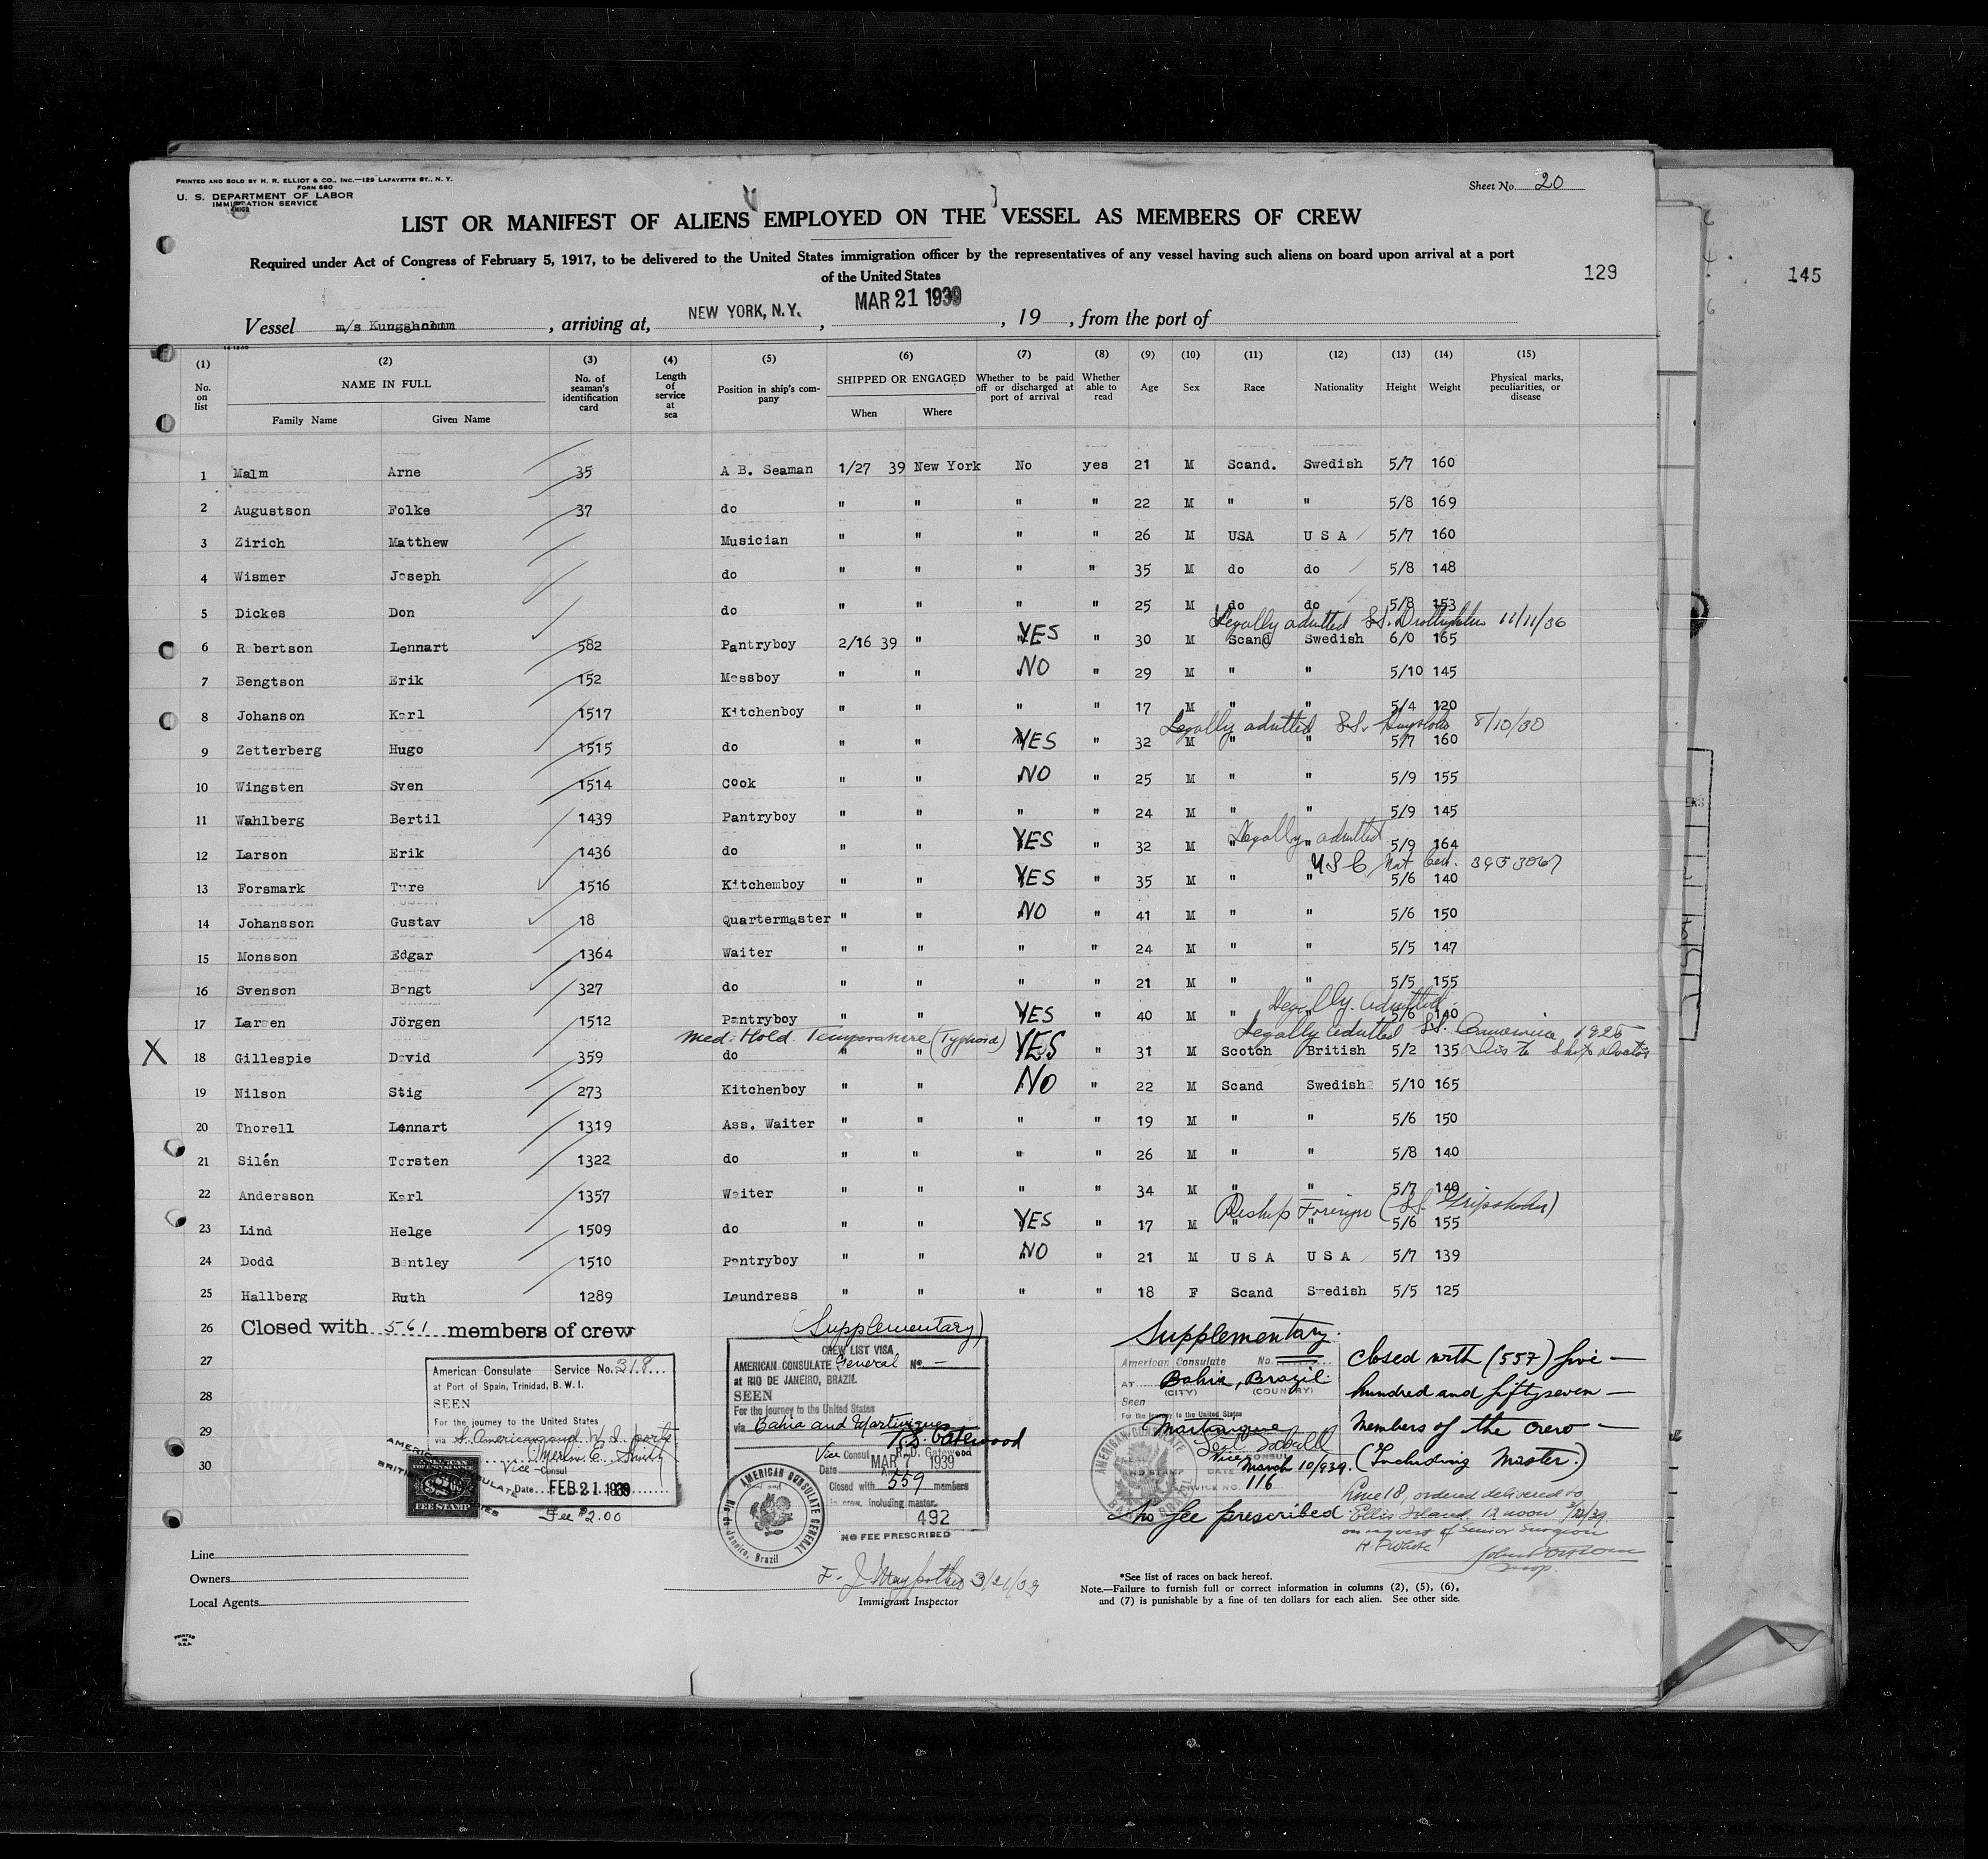 PRINTED AND SOLD BY H. R. ELLIOT & CO., INC.—129 LAFAYETTE ST., N. Y.
FORM 680
U. S. DEPARTMENT OF LABOR
IMMIGRATION SERVICE
Sheet No. 20
LIST OR MANIFEST OF ALIENS EMPLOYED ON THE VESSEL AS MEMBERS OF CREW
Required under Act of Congress of February 5, 1917, to be delivered to the United States immigration officer by the representatives of any vessel having such aliens on board upon arrival at a port
of the United States
129
145
Vessel m/s Kungsholm, arriving at, NEW YORK, N.Y., MAR 21 1939, 19 , from the port of
(1) (2) (3) (4) (5) (6) (7) (8) (9) (10) (11) (12) (13) (14) (15)
No. on list NAME IN FULL Family Name Given Name No. of seaman's identification card Length of service at sea Position in ship's company SHIPPED OR ENGAGED When Where Whether to be paid off or discharged at port of arrival Whether able to read Age Sex Race Nationality Height Weight Physical marks, peculiarities, or disease
1 Malm Arne 35 A B. Seaman 1/27 39 New York No yes 21 M Scand. Swedish 5/7 160
2 Augustson Folke 37 do " " " " 22 M " " 5/8 169
3 Zirich Matthew Musician " " " " 26 M USA U S A 5/7 160
4 Wismer Joseph do " " " " 35 M do do 5/8 148
5 Dickes Don do " " " " 25 M do do 5/8 153
Legally admitted SS. Drottningholm 11/11/36
6 Robertson Lennart 582 Pantryboy 2/16 39 " YES " 30 M Scand Swedish 6/0 165
7 Bengtson Erik 152 Messboy " " NO " 29 M " " 5/10 145
8 Johanson Karl 1517 Kitchenboy " " " " 17 M " " 5/4 120
Legally admitted SS. 8/10/30
9 Zetterberg Hugo 1515 do " " YES " 32 M " " 5/7 160
10 Wingsten Sven 1514 Cook " " NO " 25 M " " 5/9 155
11 Wahlberg Bertil 1439 Pantryboy " " " " 24 M " " 5/9 145
Legally admitted
12 Larson Erik 1436 do " " YES " 32 M " " 5/9 164
USC Nat Cert.
13 Forsmark Ture 1516 Kitchemboy " " YES " 35 M " " 5/6 140
14 Johansson Gustav 18 Quartermaster " " NO " 41 M " " 5/6 150
15 Monsson Edgar 1364 Waiter " " " " 24 M " " 5/5 147
16 Svenson Bengt 327 do " " " " 21 M " " 5/5 155
Legally admitted
17 Larsen Jörgen 1512 Pantryboy " " YES " 40 M " " 5/6 140
Med. Hold. Temperature (Typhoid) Legally admitted SS. 1925
X 18 Gillespie David 359 do " " YES " 31 M Scotch British 5/2 135 Dis to Ship Doctor
19 Nilson Stig 273 Kitchenboy " " NO " 22 M Scand Swedish 5/10 165
20 Thorell Lennart 1319 Ass. Waiter " " " " 19 M " " 5/6 150
21 Silén Torsten 1322 do " " " " 26 M " " 5/8 140
22 Andersson Karl 1357 Waiter " " " " 34 M " " 5/7 140
Reship Foreign (SS. Gripsholm)
23 Lind Helge 1509 do " " YES " 17 M " " 5/6 155
24 Dodd Bentley 1510 Pantryboy " " NO " 21 M U S A U S A 5/7 139
25 Hallberg Ruth 1289 Laundress " " " " 18 F Scand Swedish 5/5 125
26 Closed with 561 members of crew
27
28
29
30
American Consulate Service No. 318
at Port of Spain, Trinidad, B. W. I.
SEEN
For the journey to the United States
via S. American and W. I. ports
Vice Consul
Date FEB 21 1939
FEE STAMP
Fee $2.00
(Supplementary)
CREW LIST VISA
AMERICAN CONSULATE General No. —
at RIO DE JANEIRO, BRAZIL
SEEN
For the journey to the United States
via Bahia and Martinique
R.D. Gatewood
Vice Consul R. D. Gatewood
Date MAR 7 1939
Closed with 559 members
in crew, including master.
492
NO FEE PRESCRIBED
AMERICAN CONSULATE GENERAL
Rio de Janeiro, Brazil
Supplementary.
American Consulate No.
AT Bahia, Brazil.
(CITY) (COUNTRY)
Seen
For the journey to the United States
Martinique
Vice CONSUL
DATE March 10/939.
SERVICE NO. 116
No fee prescribed.
Closed with (557) five—
hundred and fiftyseven—
Members of the crew—
(Including Master.)
Line 18, ordered delivered to
Ellis Island 12 noon 3/21/39
on request of Senior Surgeon
H. P. White
Insp.
Line
Owners
Local Agents
3/21/39
Immigrant Inspector
*See list of races on back hereof.
Note.—Failure to furnish full or correct information in columns (2), (5), (6),
and (7) is punishable by a fine of ten dollars for each alien. See other side.
PRINTED
IN
U.S.A.